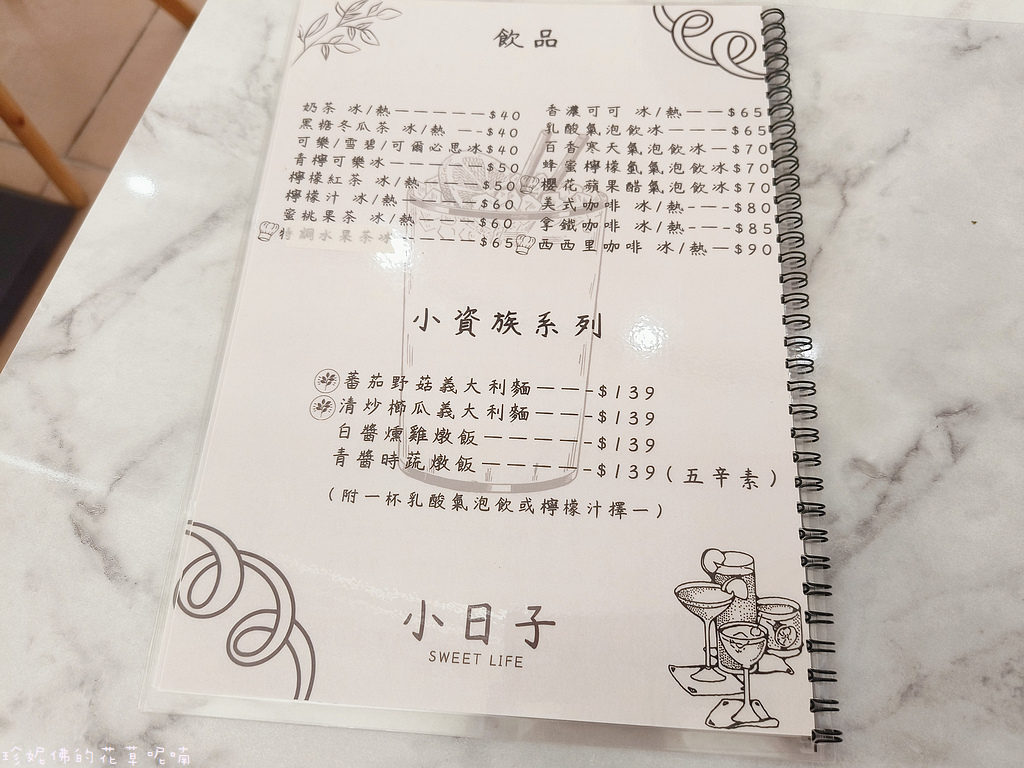 飲品
奶茶 冰/熱—————$40
黑糖冬瓜茶 冰/熱 ——$40
可樂/雪碧/可爾必思冰$40
青檸可樂冰—————$50
檸檬紅茶 冰/熱————$50
檸檬汁 冰/熱————$60
蜜桃果茶 冰/熱————$60
特調水果茶冰————$65
香濃可可 冰/熱——$65
乳酸氣泡飲冰———$65
百香寒天氣泡飲冰—$70
蜂蜜檸檬氫氣泡飲冰$70
櫻花蘋果醋氣泡飲冰$70
美式咖啡 冰/熱---$80
拿鐵咖啡 冰/熱---$85
西西里咖啡 冰/熱—$90
小資族系列
蕃茄野菇義大利麵——-$139
清炒櫛瓜義大利麵——-$139
白醬燻雞燉飯————-$139
青醬時蔬燉飯————-$139(五辛素)
(附一杯乳酸氣泡飲或檸檬汁擇一)
小日子
SWEET LIFE
珍妮佛的花草呢喃